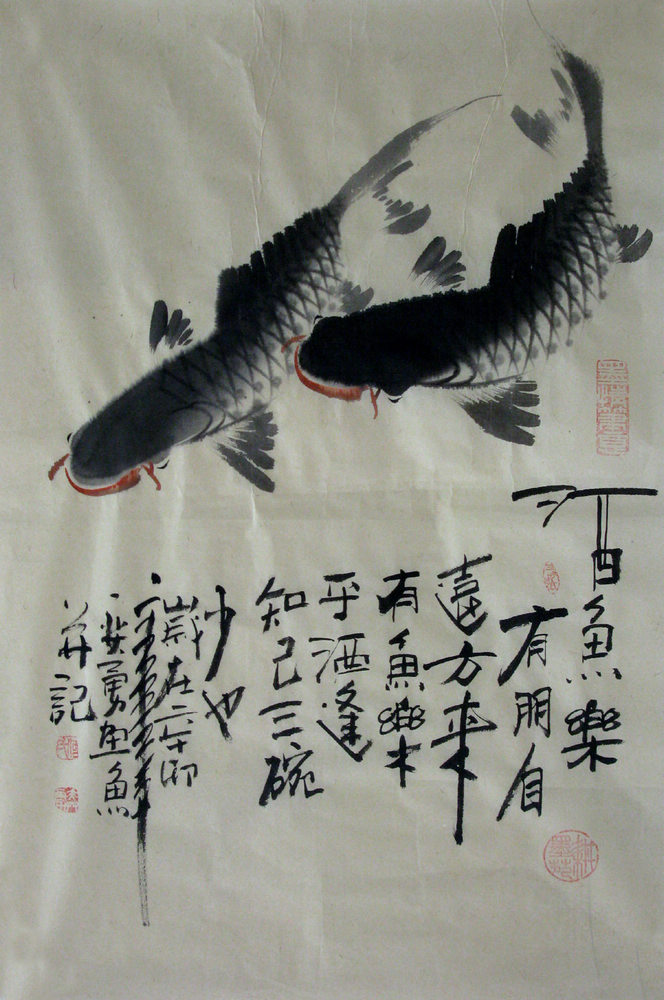 酒魚樂
有朋自
遠方來
有魚樂
乎酒逢
知己三碗
少也
歲在卯
勇画魚
并記